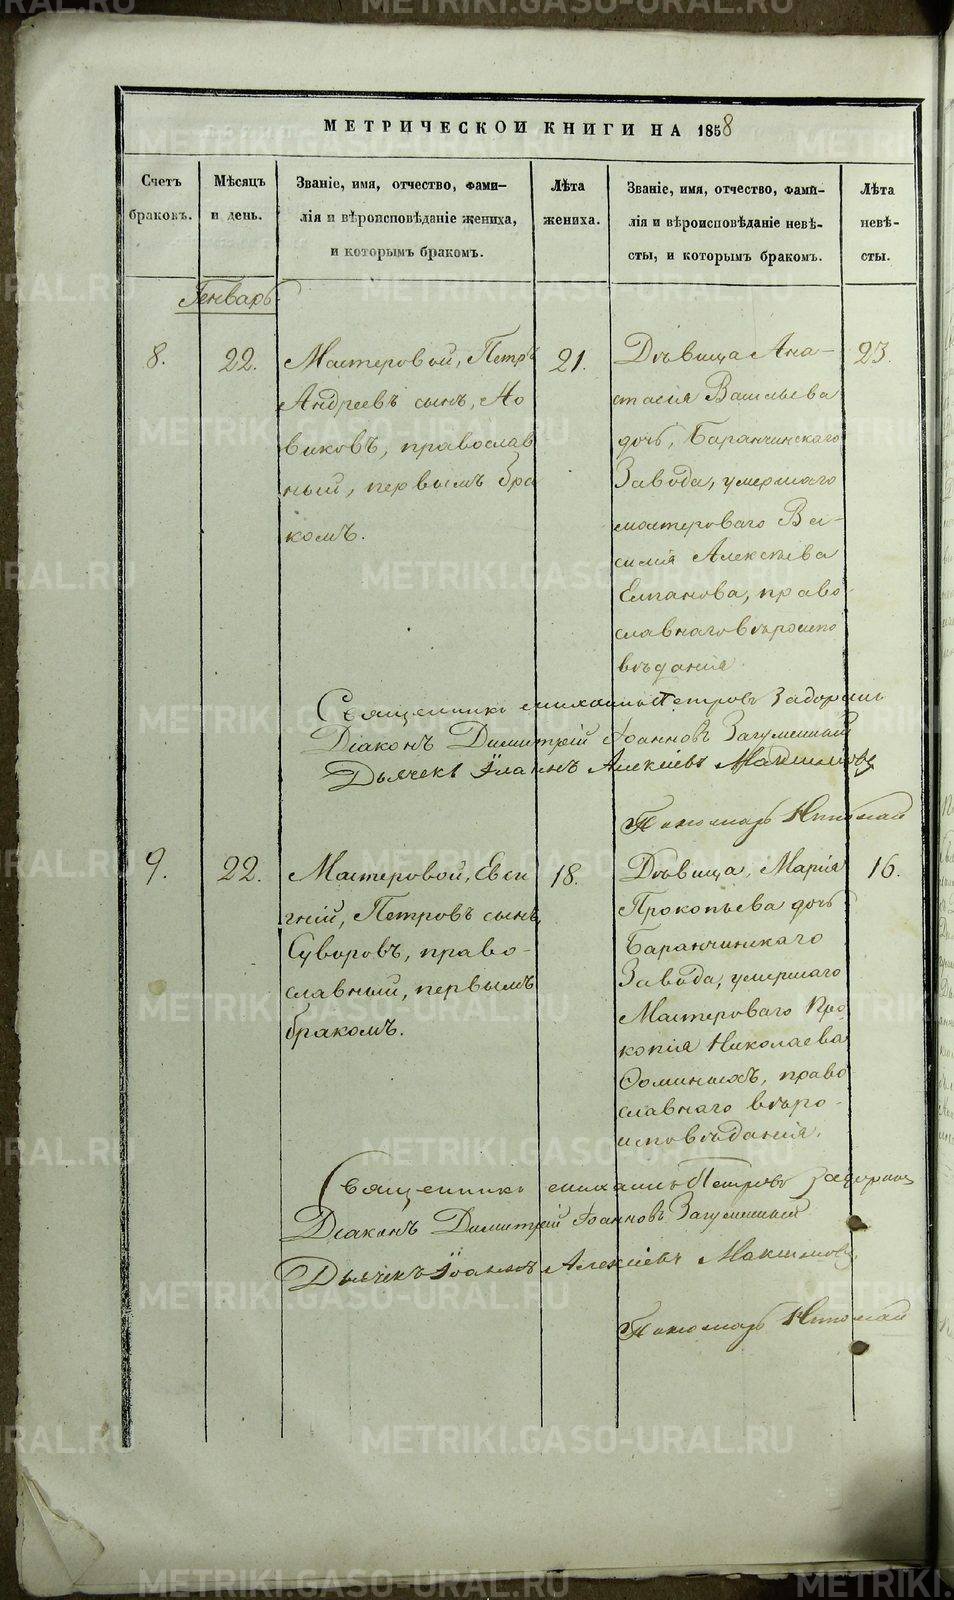 МЕТРИЧЕСКОЙ КНИГИ НА 1858
Счетъ браковъ.
Мѣсяцъ и день.
Званіе, имя, отчество, фами-
лія и вѣроисповѣданіе жениха,
и которымъ бракомъ.
Лѣта жениха.
Званіе, имя, отчество, фами-
лія и вѣроисповѣданіе невѣ-
сты, и которымъ бракомъ.
Лѣта невѣ-
сты.
Генварь.
8.
22.
Мастеровой, Петръ
Андреевъ сынъ, Но
виковъ, православ
ный, первымъ бра
комъ.
21.
Дѣвица Ана-
стасія Васильева
дочь, Баранчинскаго
Завода, умершаго
мастероваго Ва-
силія Алексѣева
Елпанова, право
славнаго вѣроиспо
вѣданія.
23.
Священникъ Михаилъ Петровъ
Діаконъ Димитрій Іоанновъ Загуменный
Дьячекъ Іоаннъ Алексіевъ Максимовъ
Пономарь Николай
9.
22.
Мастеровой, Евси
гній, Петровъ сынъ,
Суворовъ, право-
славный, первымъ
бракомъ.
18.
Дѣвица, Марія
Прокопьева дочь
Баранчинскаго
Завода, умершаго
Мастероваго Про
копія Николаева
Ѳоминыхъ, право
славнаго вѣро-
исповѣданія.
16.
Священникъ Михаилъ Петровъ
Діаконъ Димитрій Іоанновъ Загуменный
Дьячекъ Іоаннъ Алексіевъ Максимовъ
Пономарь Николай
METRIKI.GASO-URAL.RU